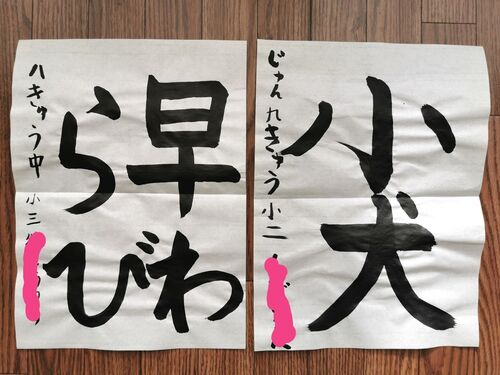 小犬
じゅん九きゅう 小二
早わ
らび
八きゅう中 小三